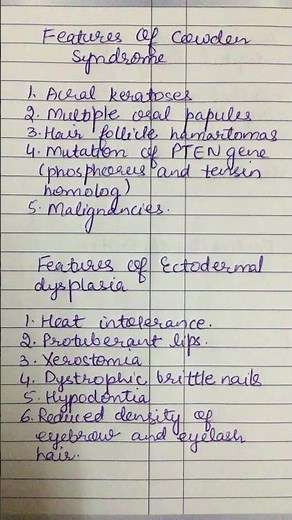 Features Of Cowden
Syndrome
1. Acral keratoses
2. Multiple oral papules
3. Hair follicle hamartomas
4. Mutation of PTEN gene
(phosphorus and tensin
homolog)
5. Malignancies.
Features of Ectodermal
dysplasia
1. Heat intolerance.
2. Protuberant lips.
3. Xerostomia
4. Dystrophic brittle nails
5. Hypodontia
6. Reduced density of
eyebrow and eyelash
hair.